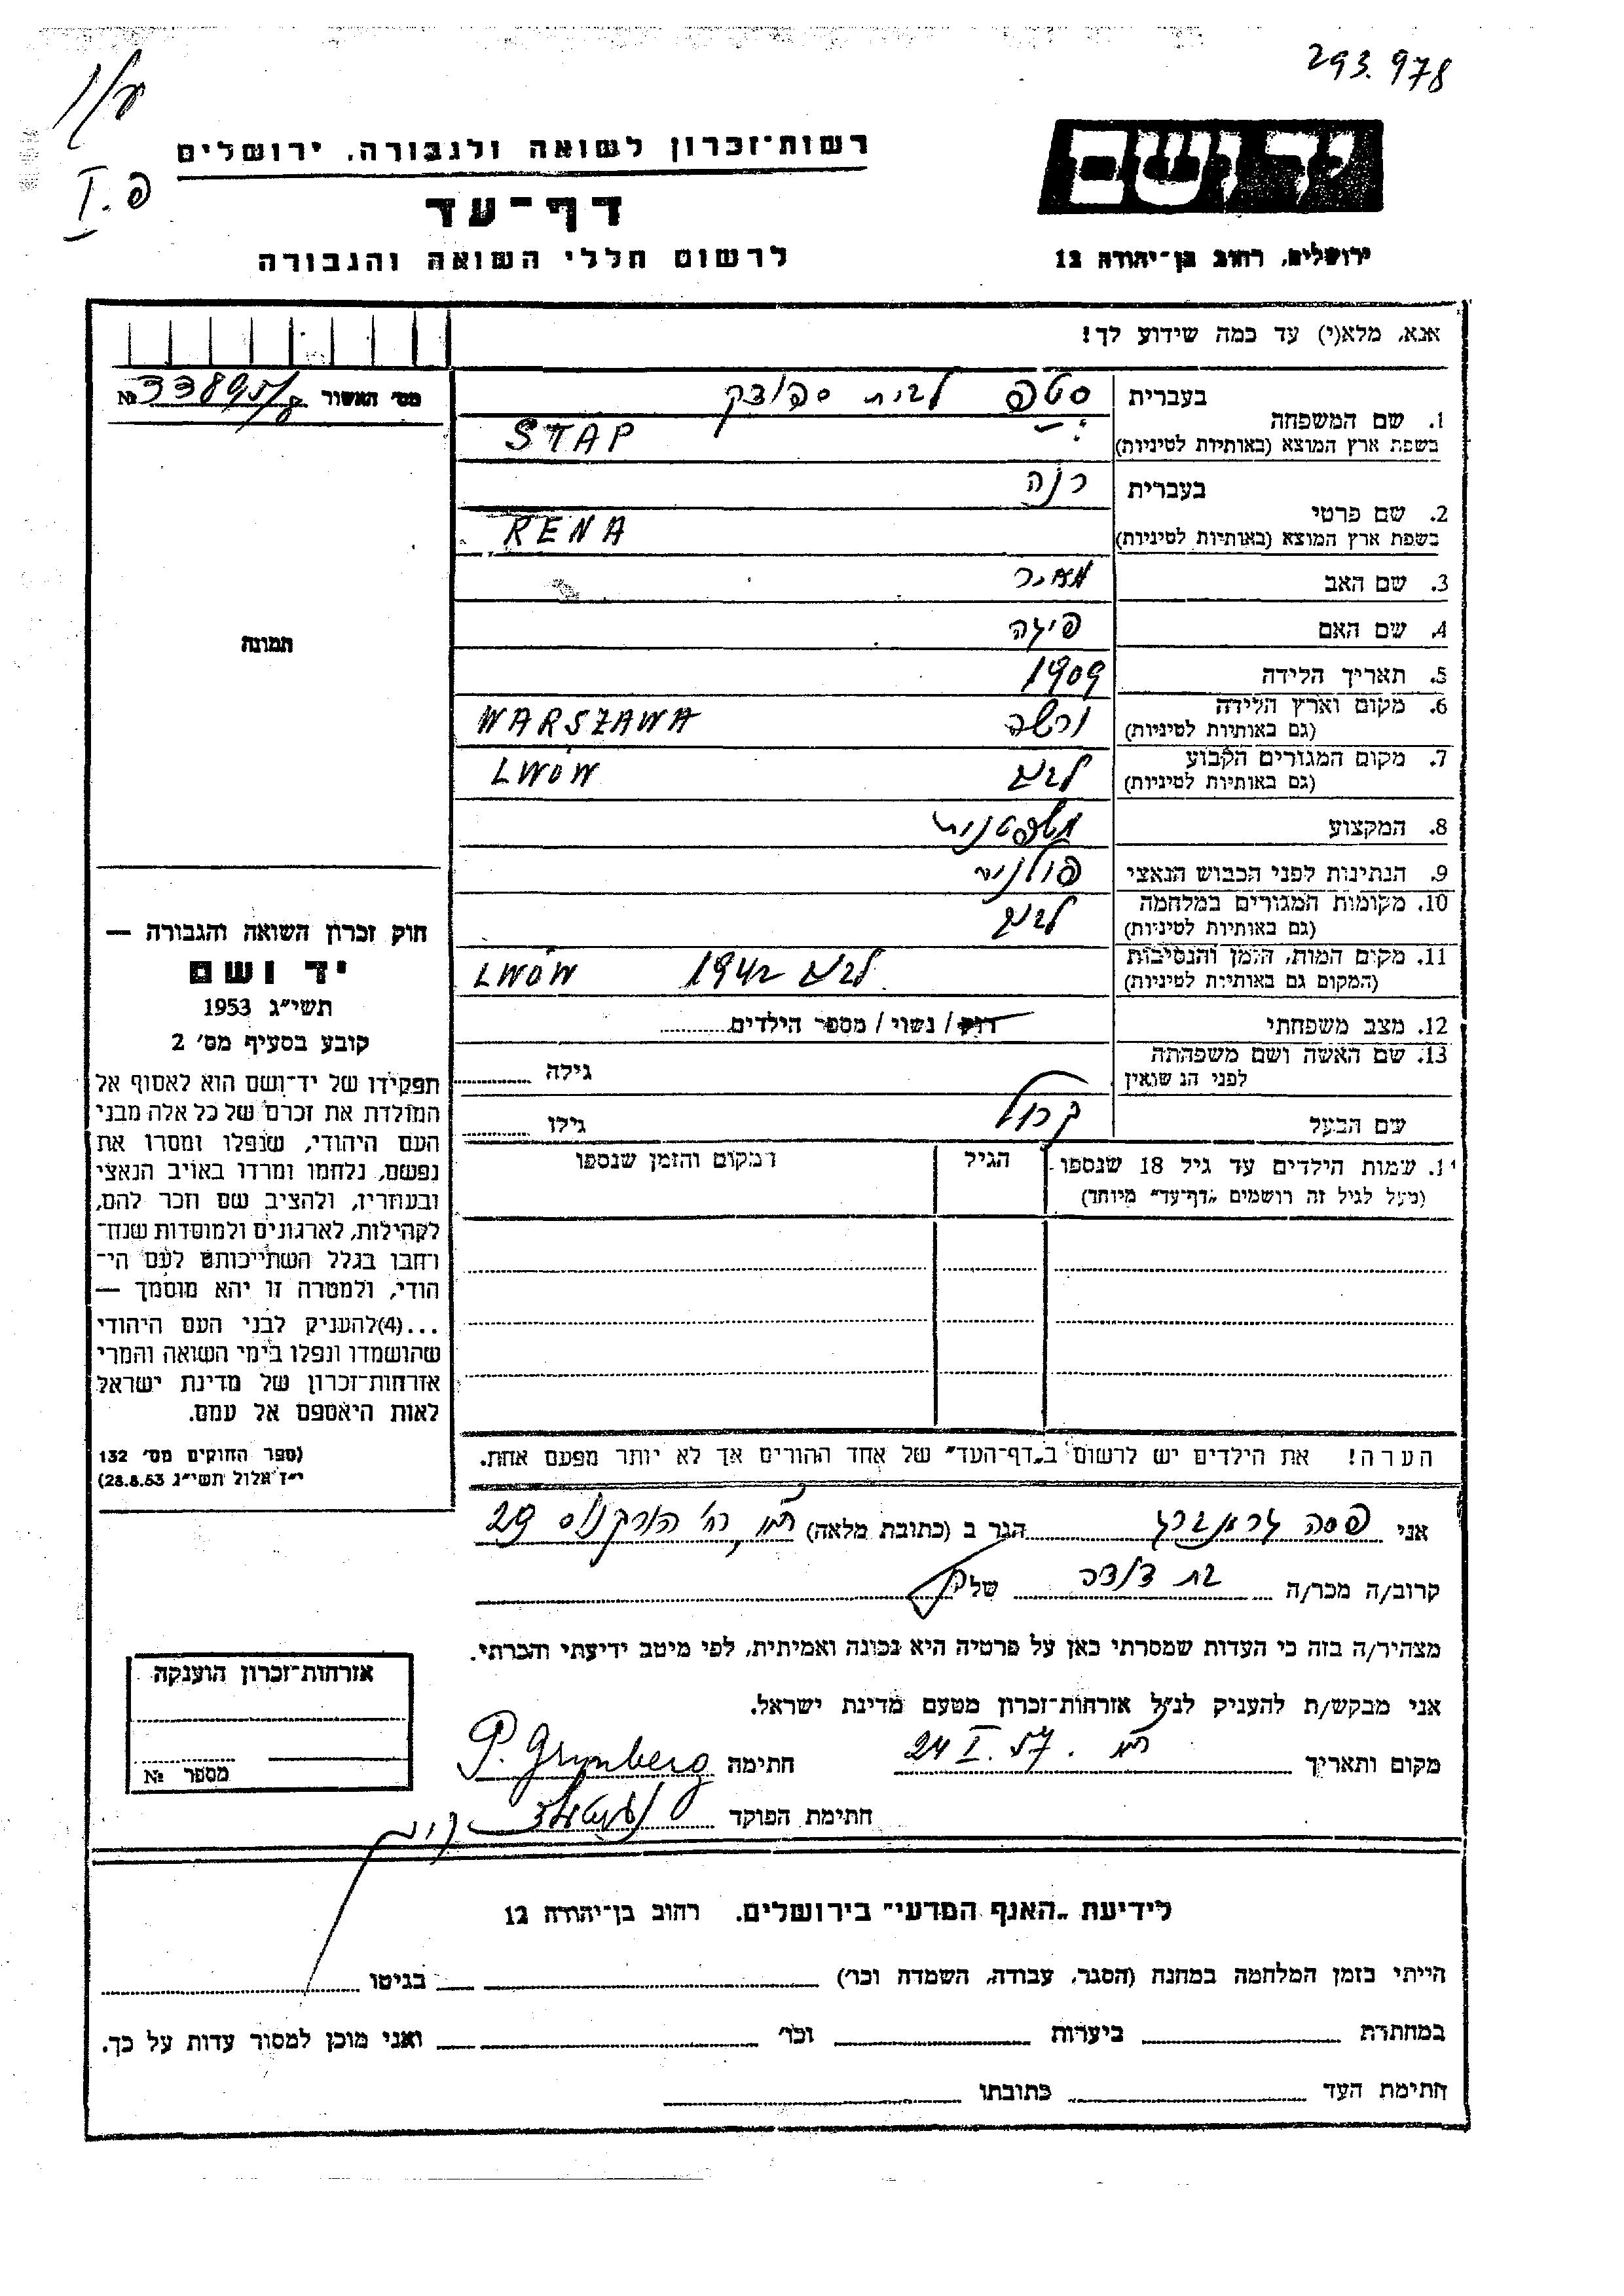 293.978
פ. I
יד ושם
רשות־זכרון לשואה ולגבורה, ירושלים
דף־עד
לרשום חללי השואה והגבורה
ירושלים, רחוב בן־יהודה 12
אנא, מלא(י) עד כמה שידוע לך!
מס׳ האשור № 33895/8
1. שם המשפחה בעברית סטפ לבית ספוצק
בשפת ארץ המוצא (באותיות לטיניות) STAP
2. שם פרטי בעברית רנה
בשפת ארץ המוצא (באותיות לטיניות) RENA
3. שם האב מאיר
4. שם האם פיגה
5. תאריך הלידה 1909
6. מקום וארץ הלידה (גם באותיות לטיניות) ורשה WARSZAWA
7. מקום המגורים הקבוע (גם באותיות לטיניות) לבוב LWÓW
8. המקצוע משפטנית
9. הנתינות לפני הכבוש הנאצי פולנית
10. מקומות המגורים במלחמה (גם באותיות לטיניות) לבוב
11. מקום המות, הזמן והנסיבות (המקום גם באותיות לטיניות) לבוב 1942 LWÓW
12. מצב משפחתי רווק / נשוי / מספר הילדים
13. שם האשה ושם משפחתה לפני הנשואין גילה
שם הבעל קרול גילו
14. שמות הילדים עד גיל 18 שנספו הגיל המקום והזמן שנספו
(מעל לגיל זה רושמים „דף־עד״ מיוחד)
הערה! את הילדים יש לרשום ב„דף־העד״ של אחד ההורים אך לא יותר מפעם אחת.
תמונה
חוק זכרון השואה והגבורה —
יד ושם
תשי״ג 1953
קובע בסעיף מס׳ 2
תפקידו של יד־ושם הוא לאסוף אל
המולדת את זכרם של כל אלה מבני
העם היהודי, שנפלו ומסרו את
נפשם, נלחמו ומרדו באויב הנאצי
ובעוזריו, ולהציב שם וזכר להם,
לקהילות, לארגונים ולמוסדות שנח־
רחבו בגלל השתייכותם לעם הי־
הודי, ולמטרה זו יהא מוסמך —
...(4) להעניק לבני העם היהודי
שהושמדו ונפלו בימי השואה והמרי
אזרחות־זכרון של מדינת ישראל
לאות היאספם אל עמם.
(ספר החוקים מס׳ 132
י״ד אלול תשי״ג 28.8.53)
אני פסה גראנברג הגר ב (כתובת מלאה) רח׳ הורקנוס 29
קרוב/ה מכר/ה בת דודה של
מצהיר/ה בזה כי העדות שמסרתי כאן על פרטיה היא נכונה ואמיתית, לפי מיטב ידיעתי והכרתי.
אני מבקש/ת להעניק לנ״ל אזרחות־זכרון מטעם מדינת ישראל.
מקום ותאריך 24 I. 57 חתימה P. Grynberg
חתימת הפוקד
אזרחות־זכרון הוענקה
מספר №
לידיעת „האגף המדעי״ בירושלים. רחוב בן־יהודה 12
הייתי בזמן המלחמה במחנה (הסגר, עבודה, השמדה וכו׳) בגיטו
במחתרת ביערות וכו׳ ואני מוכן למסור עדות על כך.
חתימת העד כתובתו